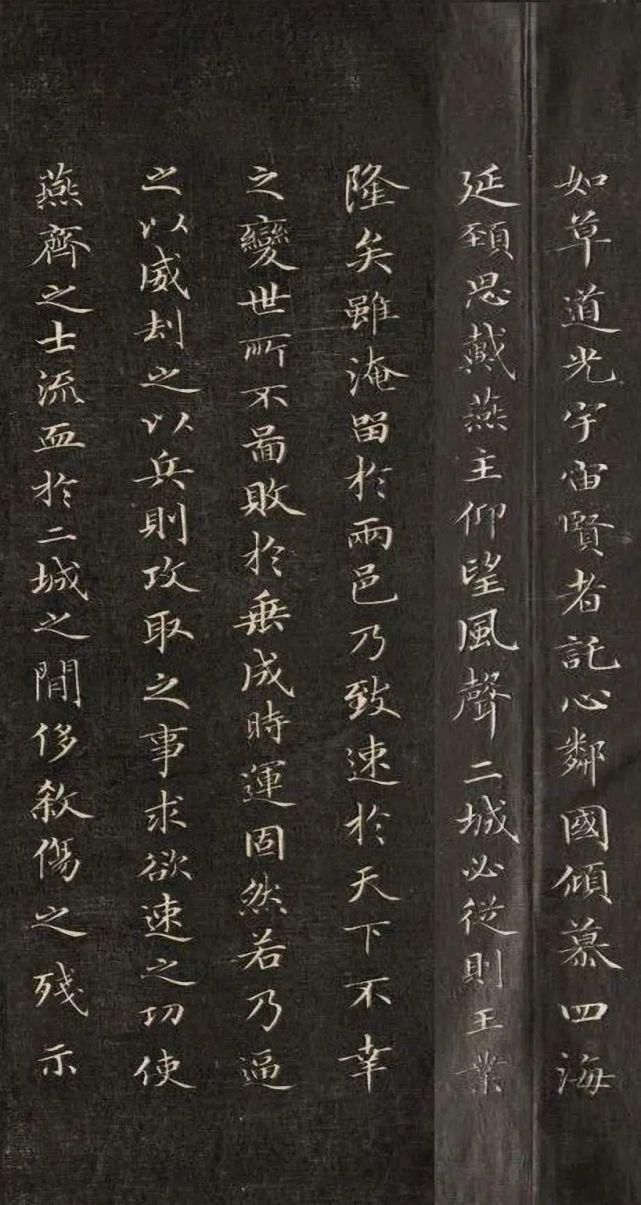 如草道光宇宙賢者託心鄰國傾慕四海
延頸思戴燕主仰望風聲二城必從則王業
隆矣雖淹留於兩邑乃致速於天下不幸
之變世所不啚敗於垂成時運固然若乃逼
之以威刦之以兵則攻取之事求欲速之功使
燕齊之士流血於二城之間侈煞傷之殘示